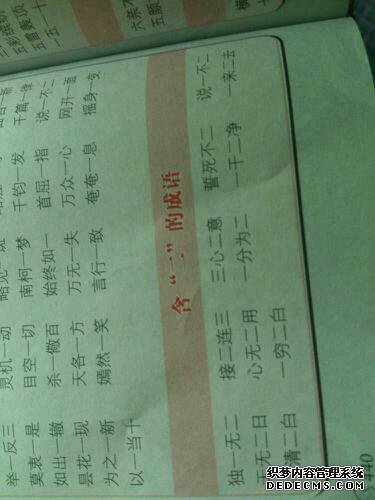 五雷轰顶
一五一十
横
举一反三 灵机一动 略见一斑
莫衷一是 目空一切 南柯一梦 千钧一发 千篇一律
如出一辙 杀一儆百 始终如一 首屈一指 说一不二
昙花一现 天各一方 万无一失 万众一心 网开一面
为之一新 嫣然一笑 言行一致 奄奄一息 摇身一变
以一当十
含“二”的成语
独一无二 接二连三 三心二意 誓死不二 说一不二
天无二日 心无二用 一分为二 一干二净 一来二去
一清二白 一穷二白
140
织梦内容管理系统
DEDECMS.COM